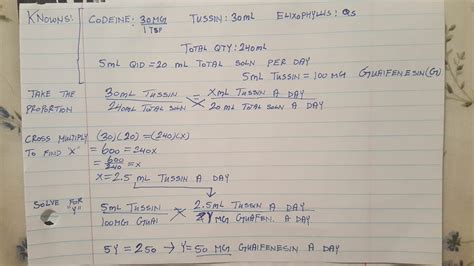 KNOWNS: CODEINE: 30MG / 1 TSP TUSSIN: 30ML ELIXOPHYLLIS: QS
TOTAL QTY: 240ML
5ML QID = 20 ML TOTAL SOLN PER DAY
5ML TUSSIN = 100 MG GUAIFENESIN(G)
TAKE THE PROPORTION
30ML TUSSIN / 240ML TOTAL SOLN = XML TUSSIN A DAY / 20 ML TOTAL SOLN A DAY
CROSS MULTIPLY TO FIND "X"
(30)(20) = (240)(X)
= 600 = 240X
= 600/240 = X
X = 2.5 ML TUSSIN A DAY
SOLVE FOR "Y"
5ML TUSSIN / 100MG GUAI 2.5ML TUSSIN A DAY / Y MG GUAFEN. A DAY
5Y = 250 → Y = 50 MG GUAIFENESIN A DAY